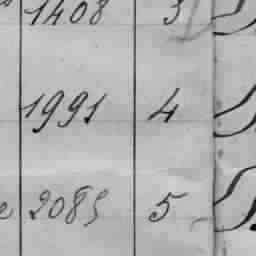 1408 3
1991 4
2085 5